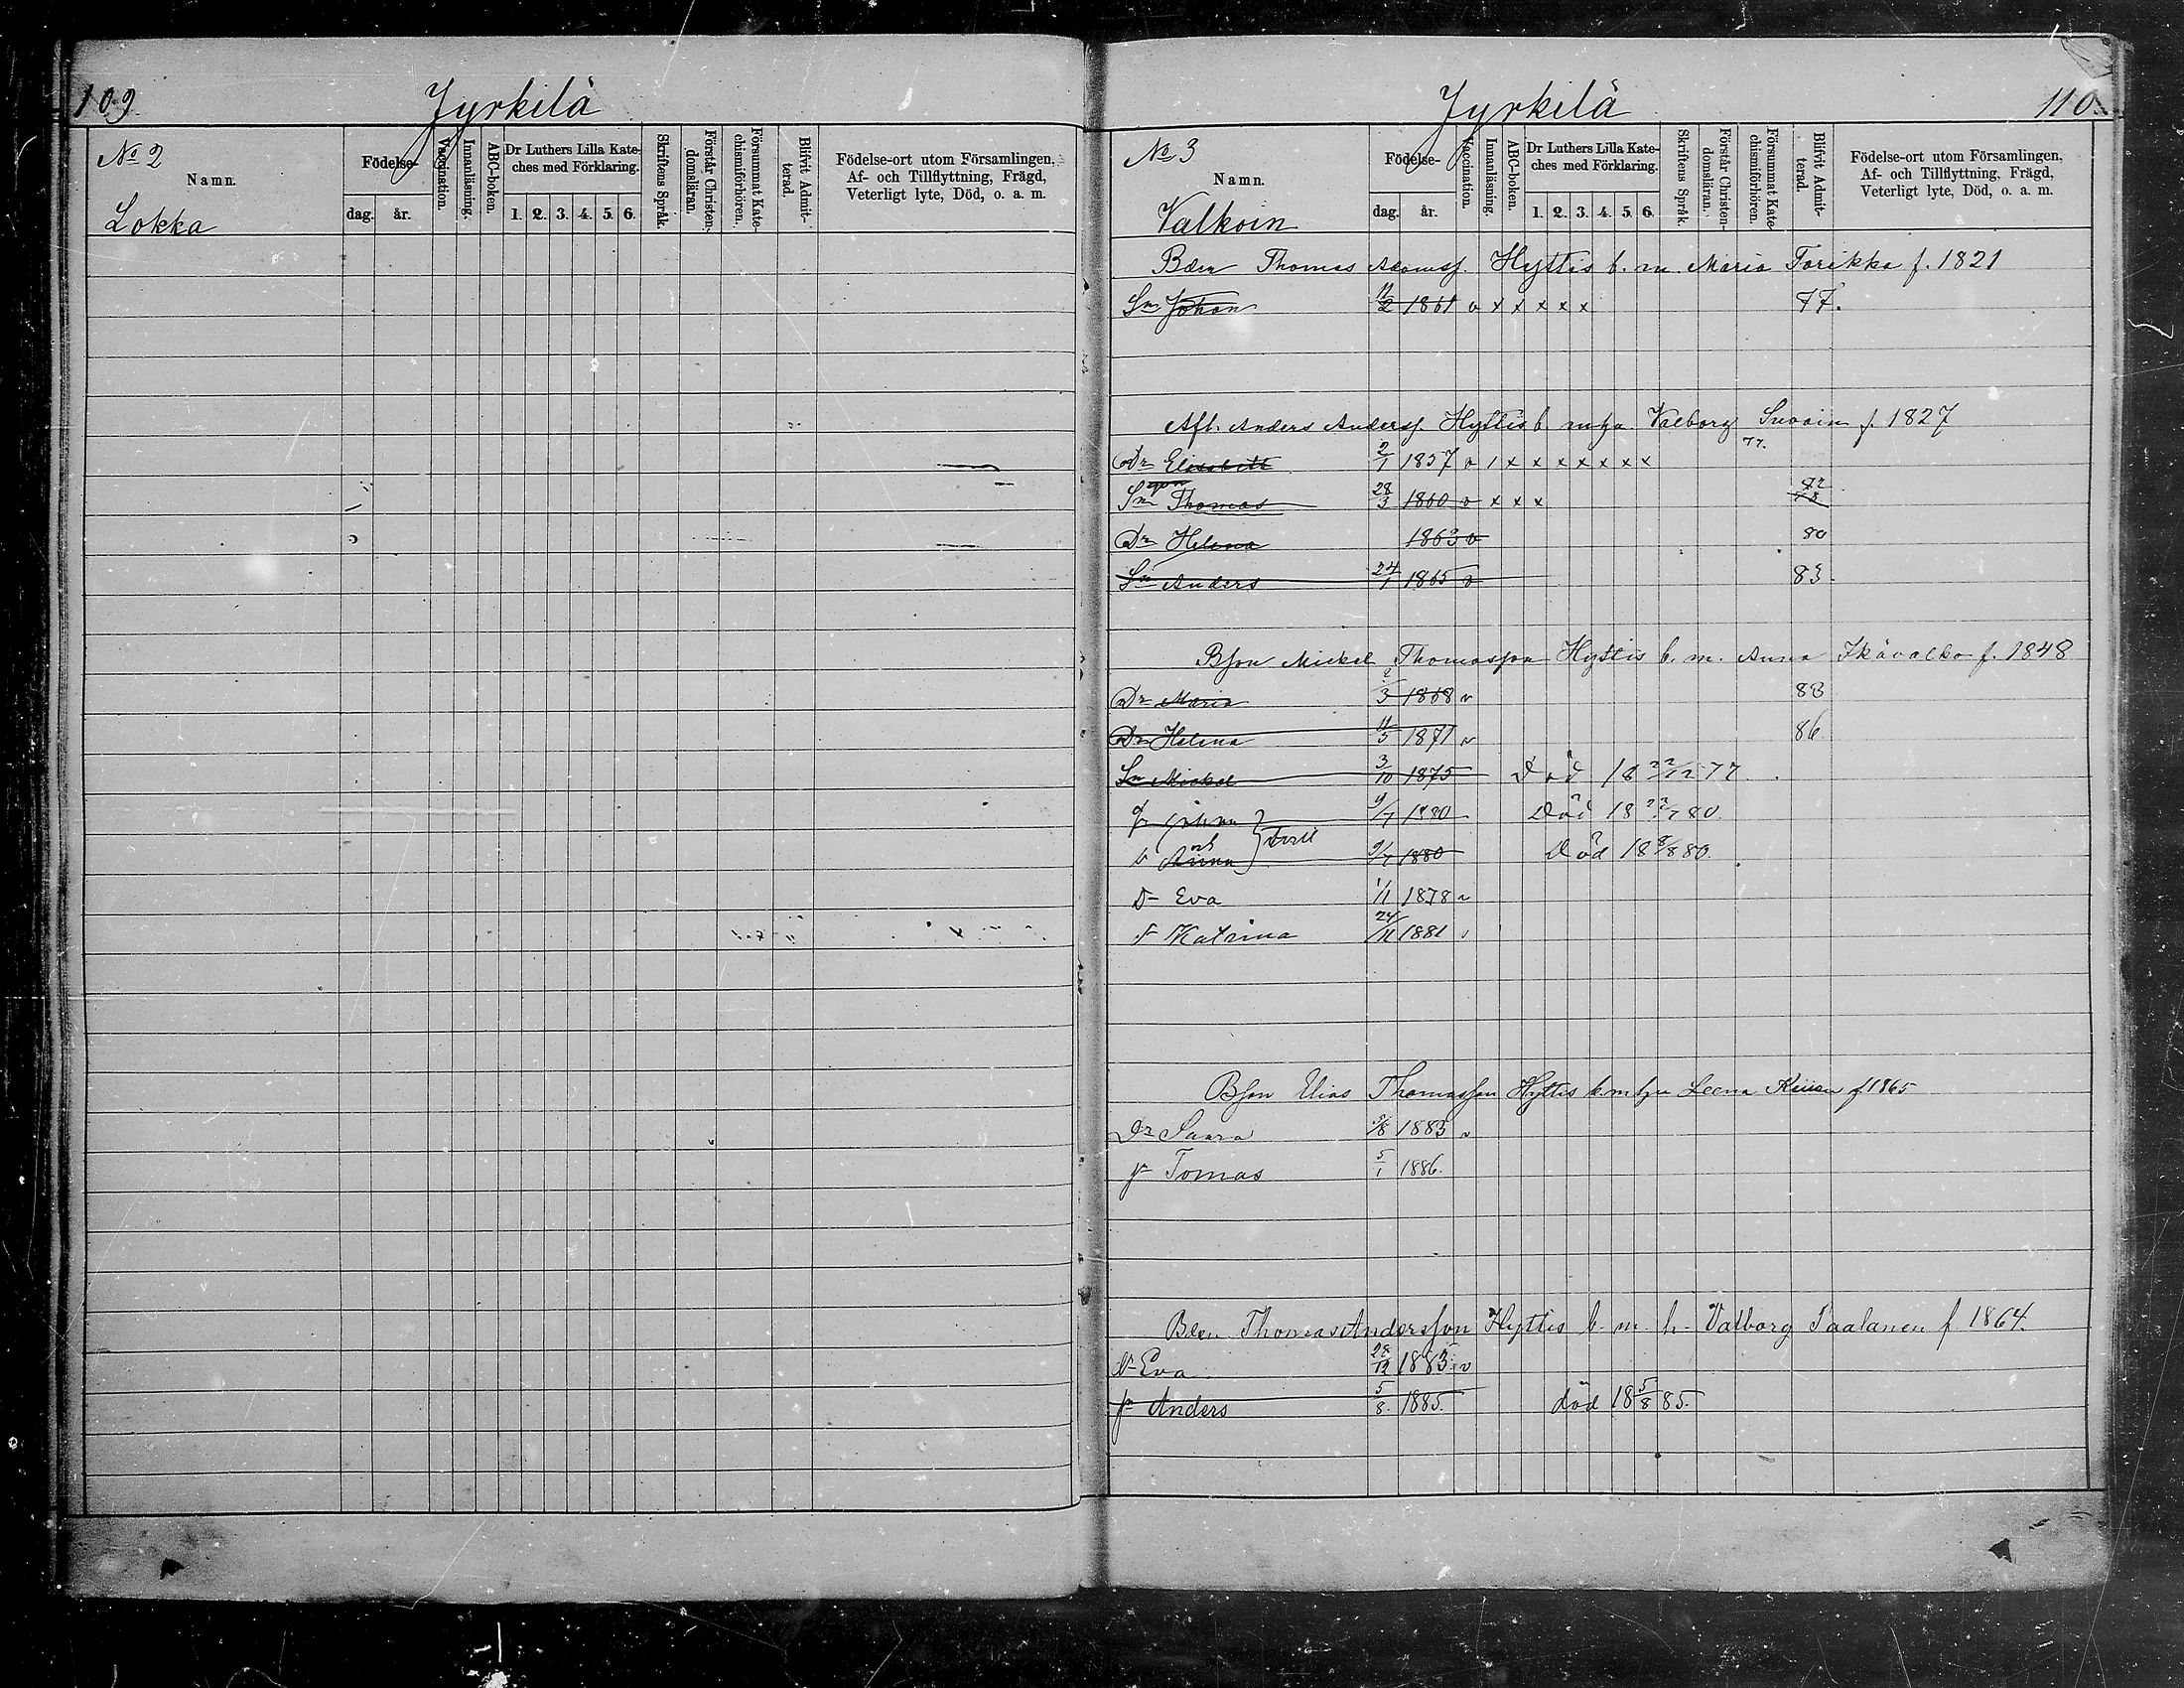 109.
Jyrkilä
№ 2
Namn.
Lokka
Födelse-
dag.
år.
Vaccination.
Innanläsning.
ABC-boken.
Dr Luthers Lilla Kate-
ches med Förklaring.
1. 2. 3. 4. 5. 6.
Skriftens Språk.
Förstår Christen-
domsläran.
Försummat Kate-
chismiförhören.
Blifvit Admit-
terad.
Födelse-ort utom Församlingen,
Af- och Tillflyttning, Frägd,
Veterligt lyte, Död, o. a. m.
Jyrkilä
110.
№ 3
Namn.
Valkoin
Födelse-
dag.
år.
Vaccination.
Innanläsning.
ABC-boken.
Dr Luthers Lilla Kate-
ches med Förklaring.
1. 2. 3. 4. 5. 6.
Skriftens Språk.
Förstår Christen-
domsläran.
Försummat Kate-
chismiförhören.
Blifvit Admit-
terad.
Födelse-ort utom Församlingen,
Af- och Tillflyttning, Frägd,
Veterligt lyte, Död, o. a. m.
Thomas Adamss. Hyttis b. m. Maria Torikka f. 1821
Sn Johan 11/2 1861 v x x x x x 77.
Afl. Anders Anderss. Hyttis b. m hu Valborg f. 1827
Dr Elisabeth 2/1 1857 v / x x x x x x x 77.
Sn Thomas 28/3 1860 v x x x 82
Dr Helena 1863 v 80
Sn Anders 24/1 1865 v 83
Bson Mickel Thomasson Hyttis b. m. Anna Ikävalko f. 1848
Dr Maria 2/3 1868 v 83
Dr Helena 11/5 1871 v 86
Sn Mickel 3/10 1875 Död 18 22/12 77
Johan 9/7 1880 Död 18 22/7 80
och
Anna 9/7 1880 Död 18 8/8 80.
D Eva 1/1 1878 v
Katrina 24/11 1881 v
Bson Elias Thomasson Hyttis b. m hu Leena f 1865
Dr Saara 5/8 1883 v
Tomas 5/1 1886.
Thomas Andersson Hyttis b. m. h. Valborg Paalanen f 1864.
Dr Eva 28/12 1883 v
Anders 5/8 1885. död 18 5/8 85.